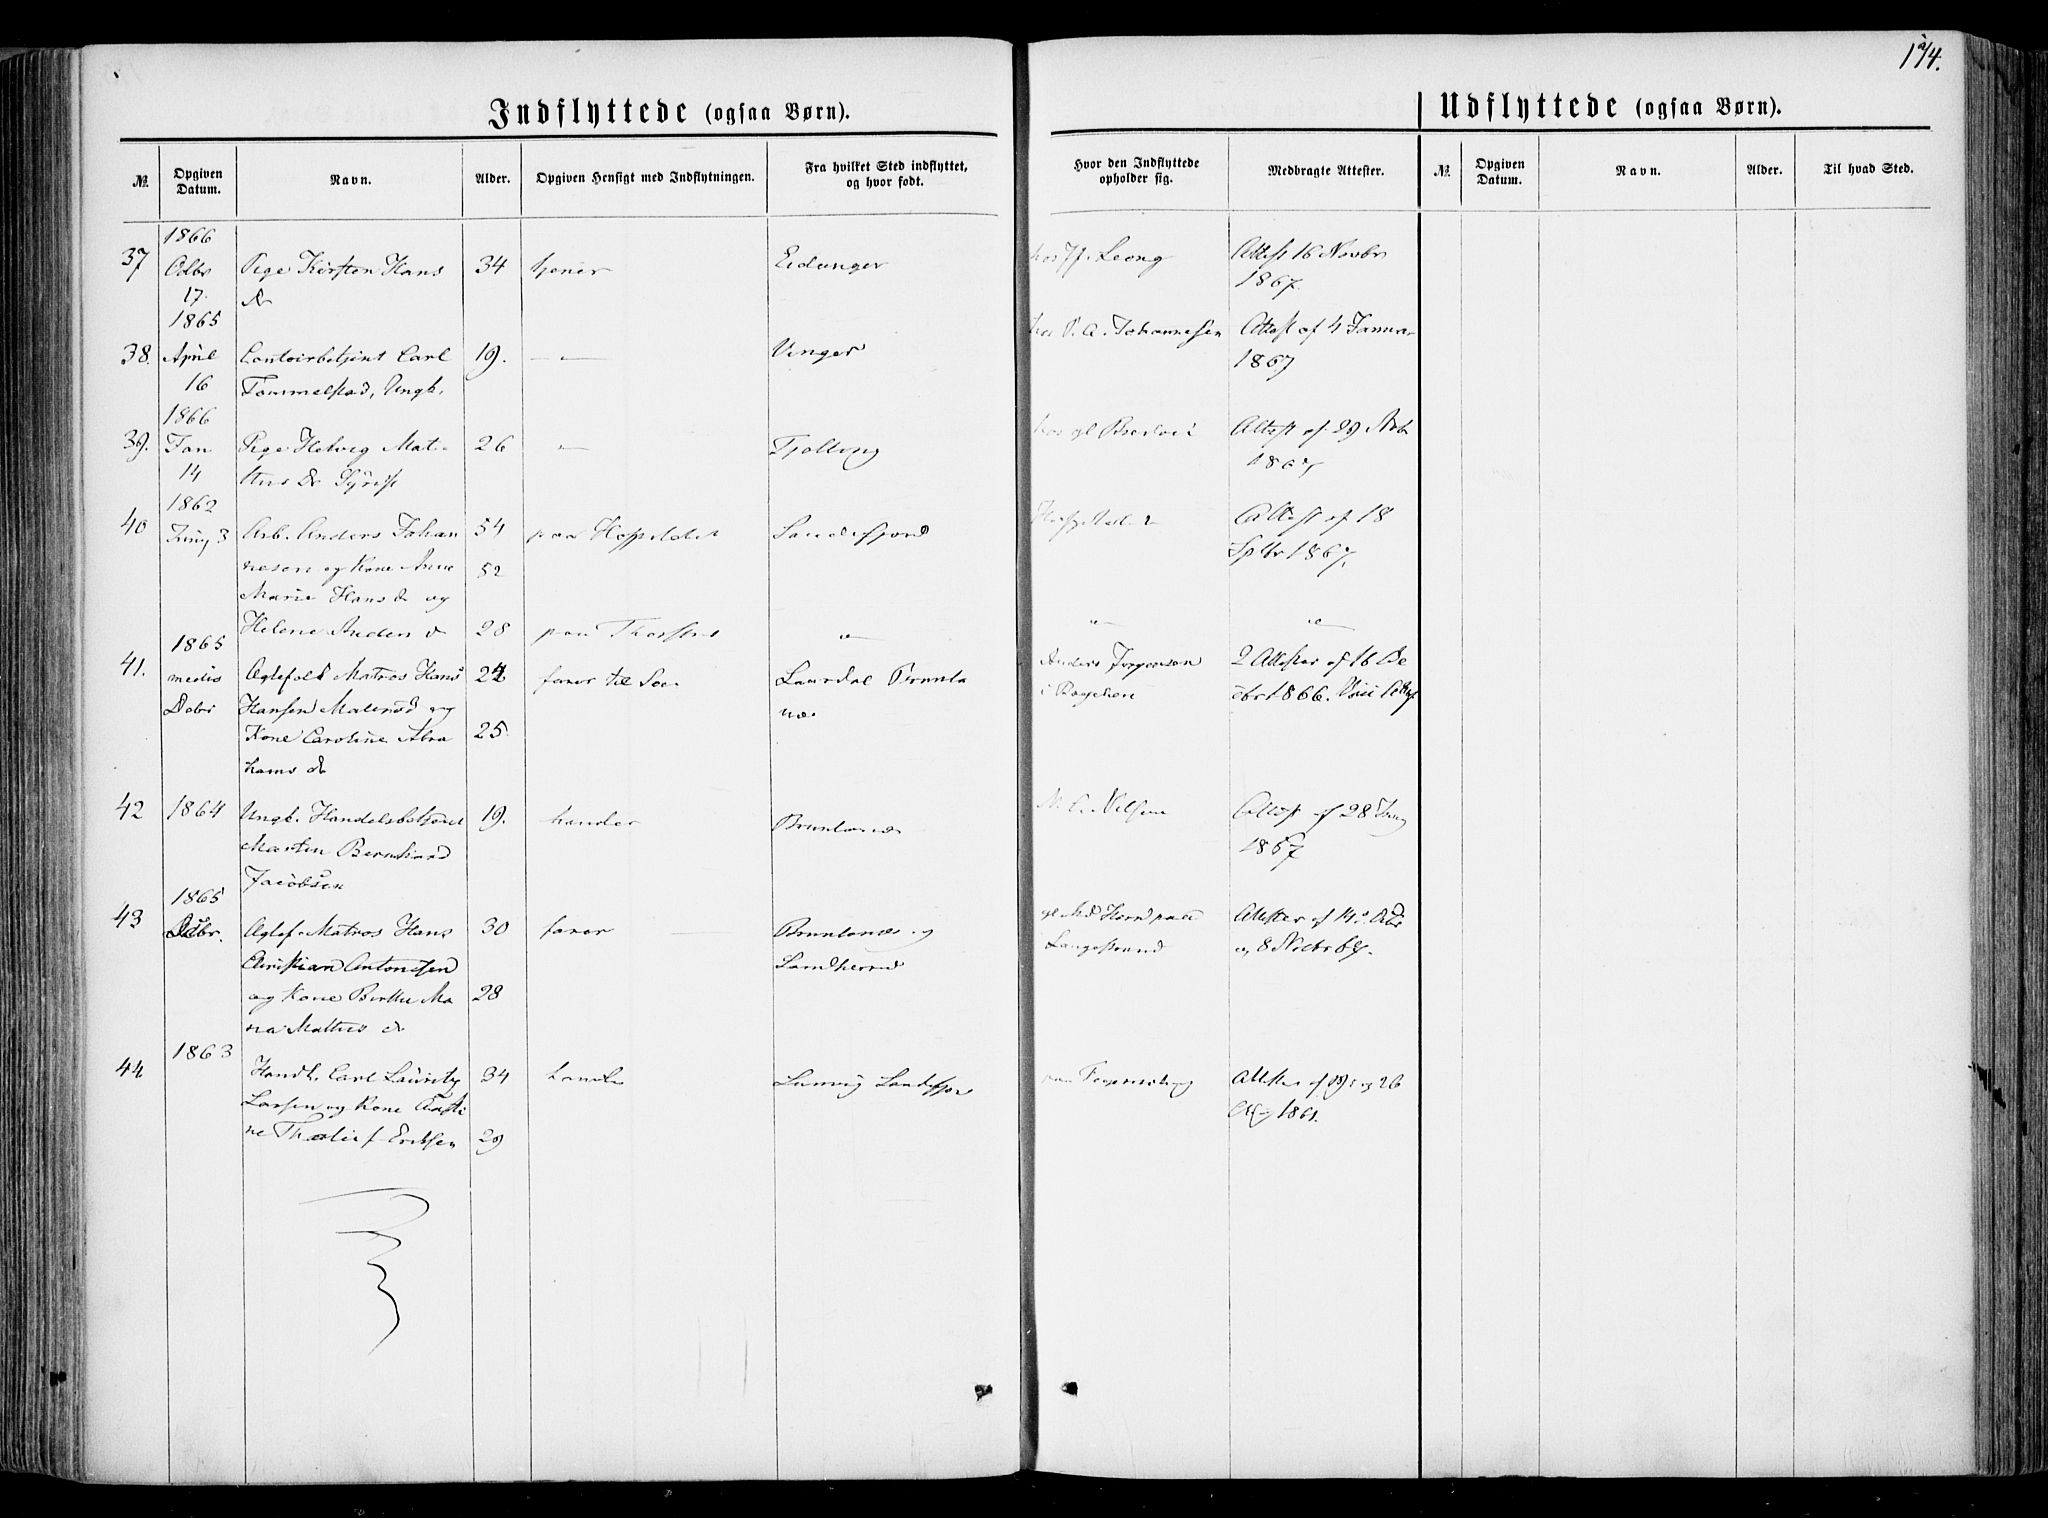 174.
Indflyttede (ogsaa Børn).
Udflyttede (ogsaa Børn).
№. Opgiven Datum. Navn. Alder. Opgiven Hensigt med Indflytningen. Fra hvilket Sted indflyttet, og hvor født. Hvor den Indflyttede opholder sig. Medbragte Attester. №. Opgiven Datum. Navn. Alder. Til hvad Sted.
1866
37 Octbr Pige Kirsten Hans 34 tjener Eidanger hos Attest 16 Novbr
17. dr 1867.
1865
38. April Contoirbetjent Carl 19. — " — Vinger hos P. A. Johannesen Attest af 4 Januar
16 Tommelstad, Ungk. 1867
1866
39. Jan Pige Helvig Mat 26 — " — Tjølling hos gl Attest af 29
14 dr 1867
1862
40 Juny 3 Arb. Anders Johan 54 paa Hospitalet Sandefjord Attest af 18
nesen og Kone Anne 52 Sptbr 1867.
Marie Hans d. og
Helene Anders d 28 paa " " "
1865
41. medio Ægtefolk Matros Hans 24 farer til Søes Laurdal Brunla Anders Jørgensen 2 Attester af 16 De
Debr Hansen og næs i cbr 1866.
Kone Caroline Abra 25.
hams dr
42 1864 Ungk. Handelsbetjent 19. handler Brunlanæs Nilsen Attest af 28 Juny
Martin Bernhard 1867
Jacobsen
1865
43 Debr. Ægtef. Matros Hans 30 farer — Brunlanæs og paa Attester af 14
Christian Antonesen Sandherred Langestrand og 8 Novbr 67.
og Kone Birthe Ma 28
ria Mathis dr
1863
44 Handl. Carl Lauritz 34 handler Laurvig Sandefjor paa Attester af 19 og 26
Larsen og Kone 1861.
ne Eriksen 29